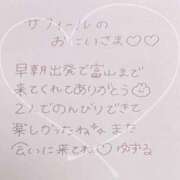 サフィールの
おにいさま♡♡
早朝出発で富山まで
来てくれてありがとう☺
2人でのんびりできて
楽しかったねな また
会いに来てネ♡ ゆする